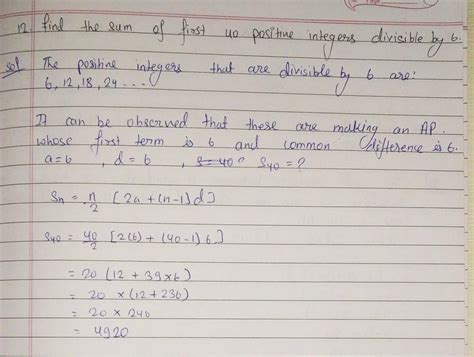 12. Find the sum of first 40 positive integers divisible by 6.
Sol The positive integers that are divisible by 6 are:
6, 12, 18, 24 ----
It can be observed that these are making an AP
whose first term is 6 and common difference is 6.
a=6 , d=6 , S40=?
Sn = n/2 [2a+(n-1)d]
S40 = 40/2 [2(6)+(40-1)6]
= 20 (12+39×6)
= 20 × (12+236)
= 20 × 246
= 4920